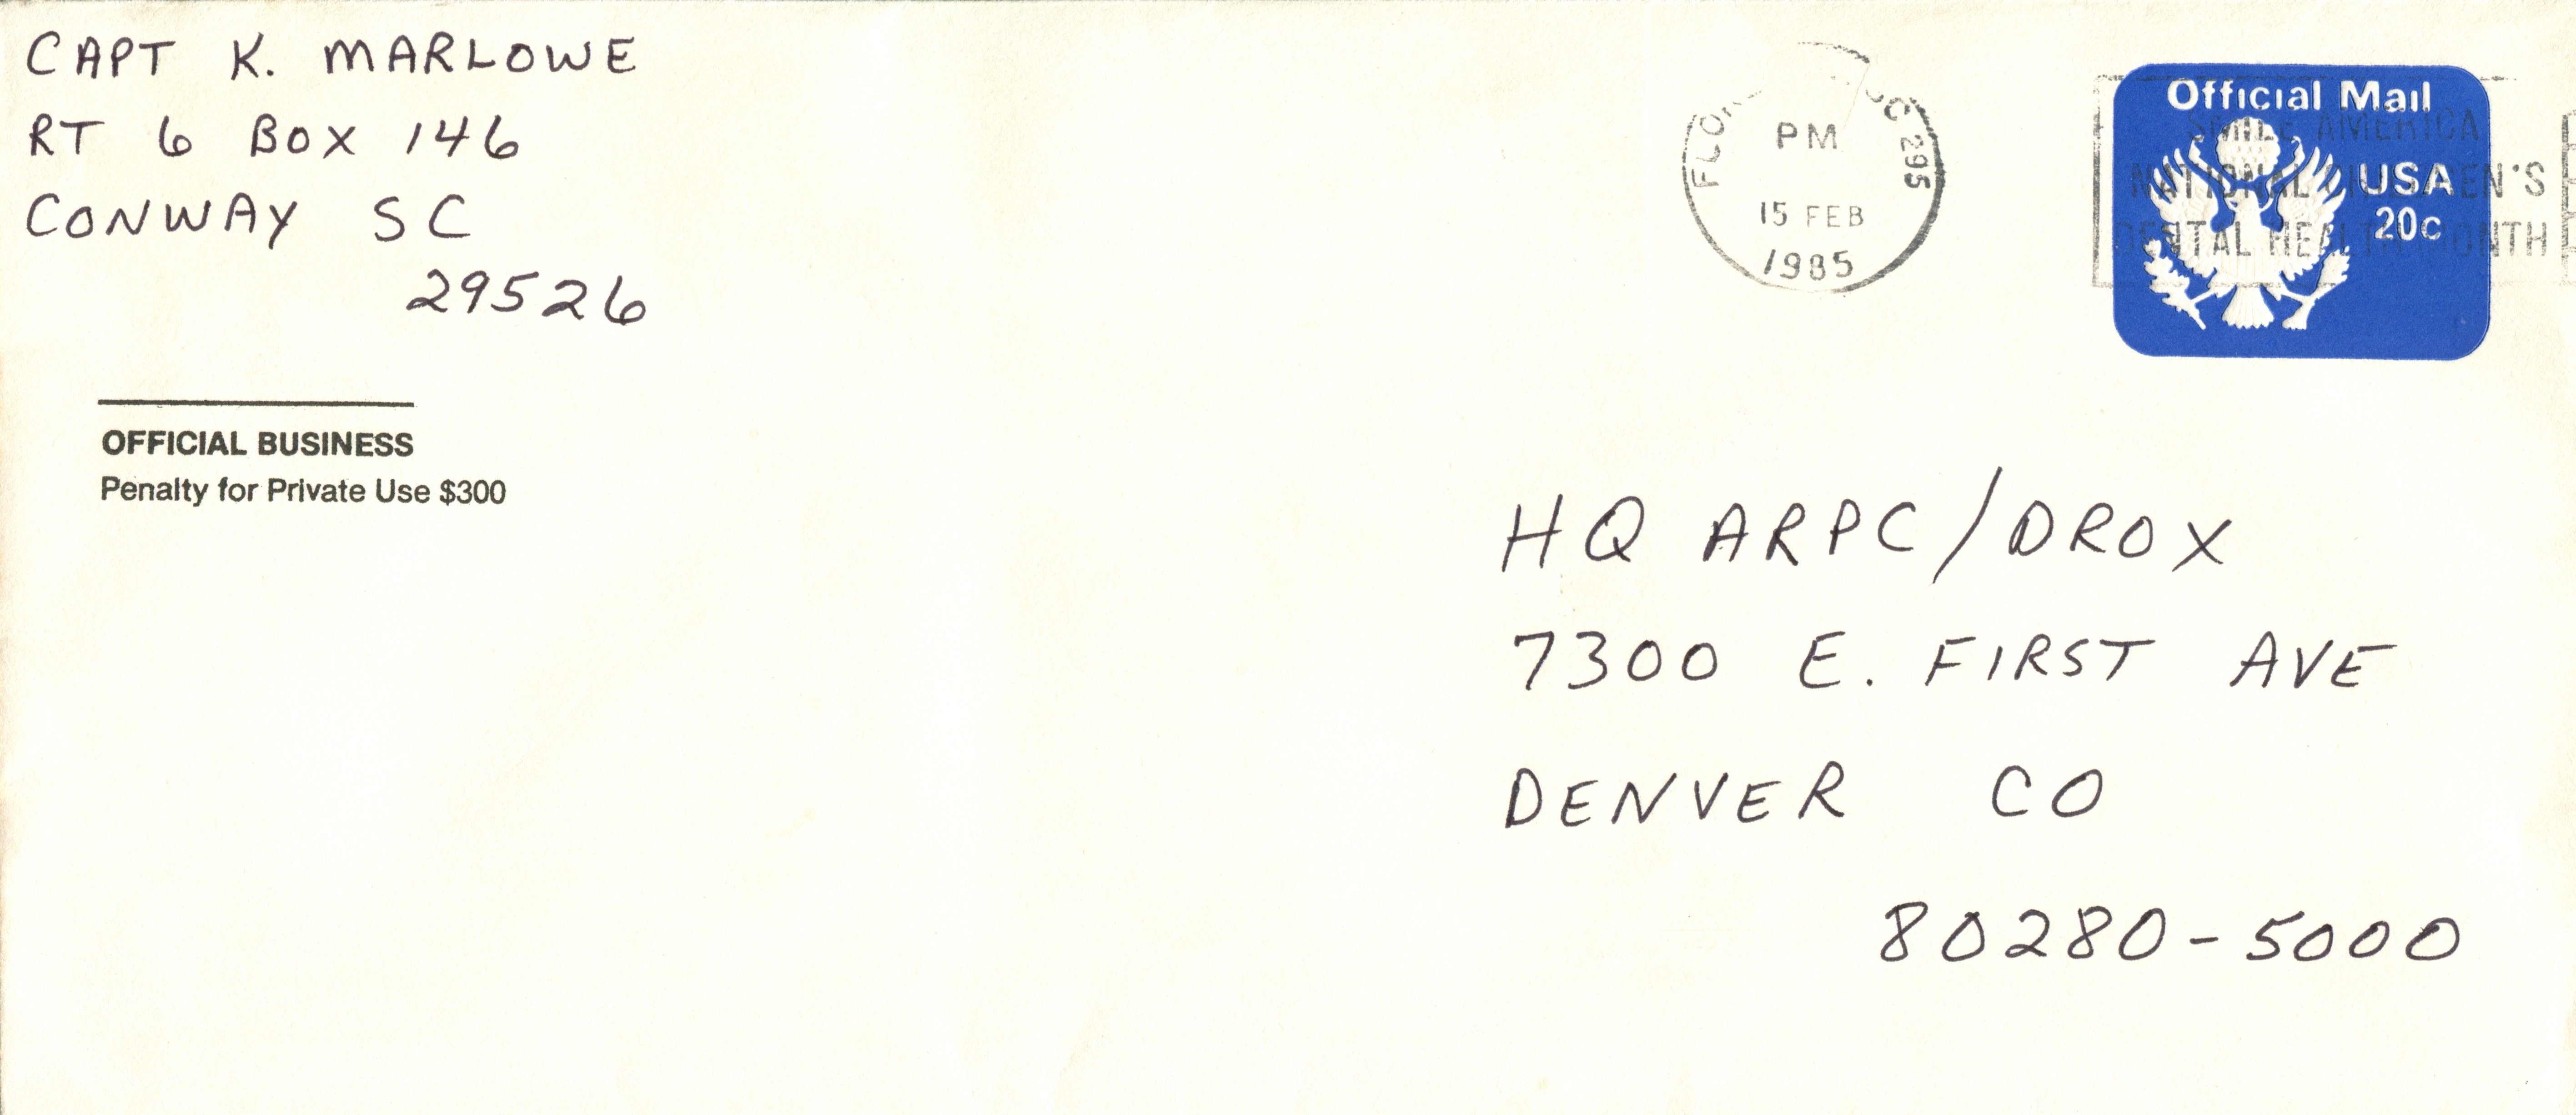 CAPT K. MARLOWE
RT 6 BOX 146
CONWAY SC
29526
OFFICIAL BUSINESS
Penalty for Private Use $300
PM
15 FEB
1985
295
Official Mail
USA
20c
SMILE AMERICA
NATIONAL CHILDREN'S
DENTAL HEALTH MONTH
HQ ARPC/DROX
7300 E. FIRST AVE
DENVER CO
80280-5000